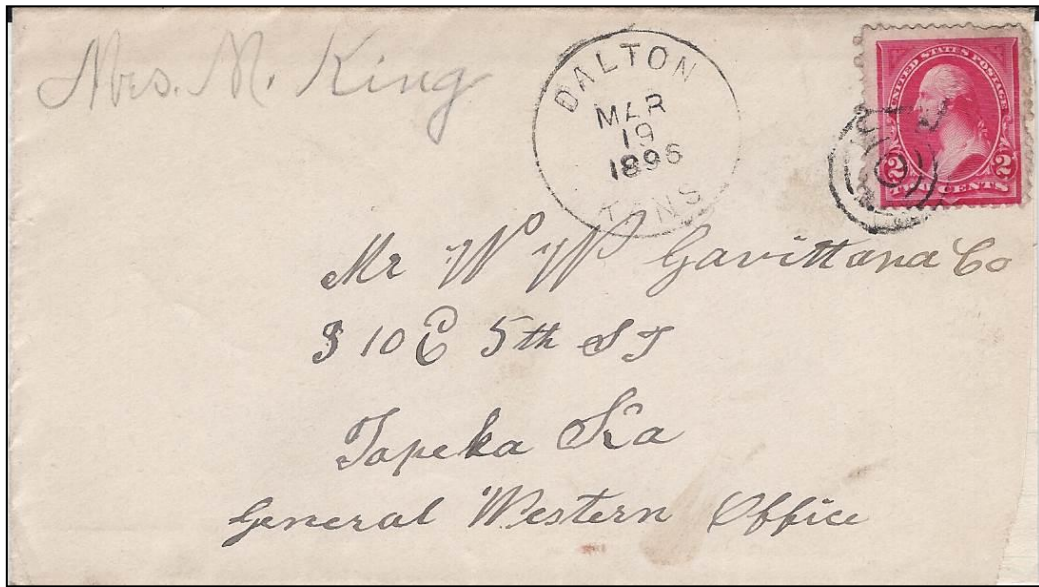 Mrs. M. King
DALTON
MAR
19
1896
KANS
UNITED STATES POSTAGE
2 2
TWO CENTS
Mr W W Gavitt and Co
310 E 5th St
Topeka Ka
General Western Office